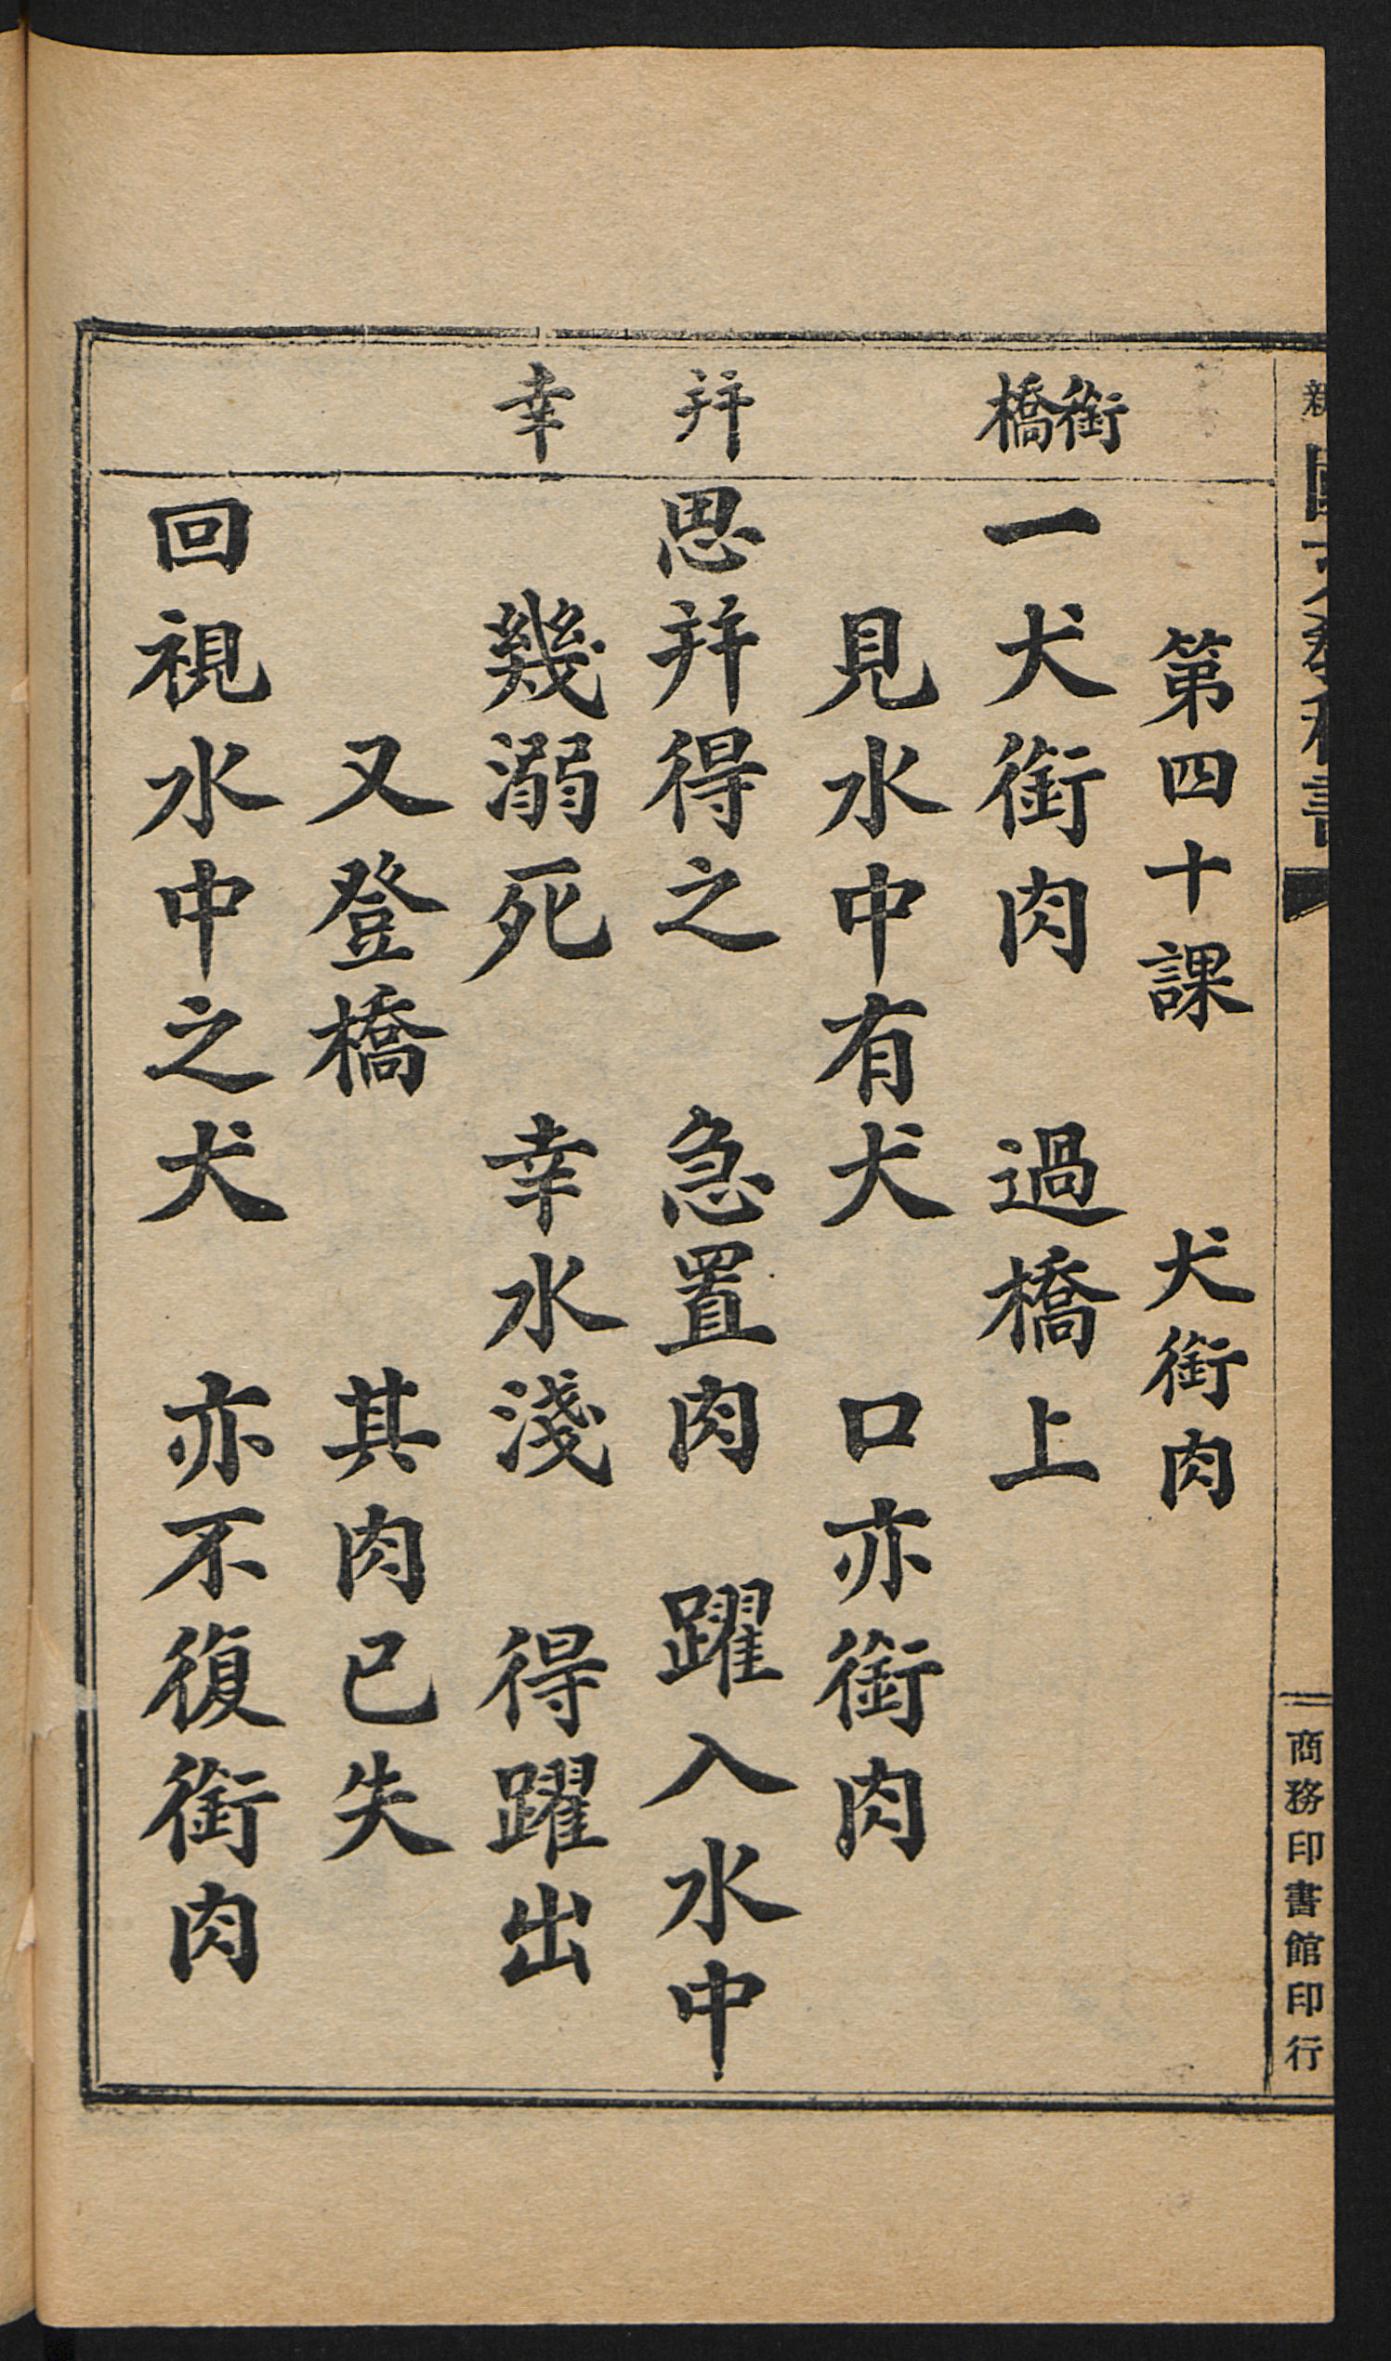 第四十課 犬銜肉
銜
橋
一犬銜肉 過橋上
見水中有犬 口亦銜肉
幷
思幷得之 急置肉 躍入水中
幸
幾溺死 幸水淺 得躍出
又登橋 其肉已失
回視水中之犬 亦不復銜肉
商務印書館印行